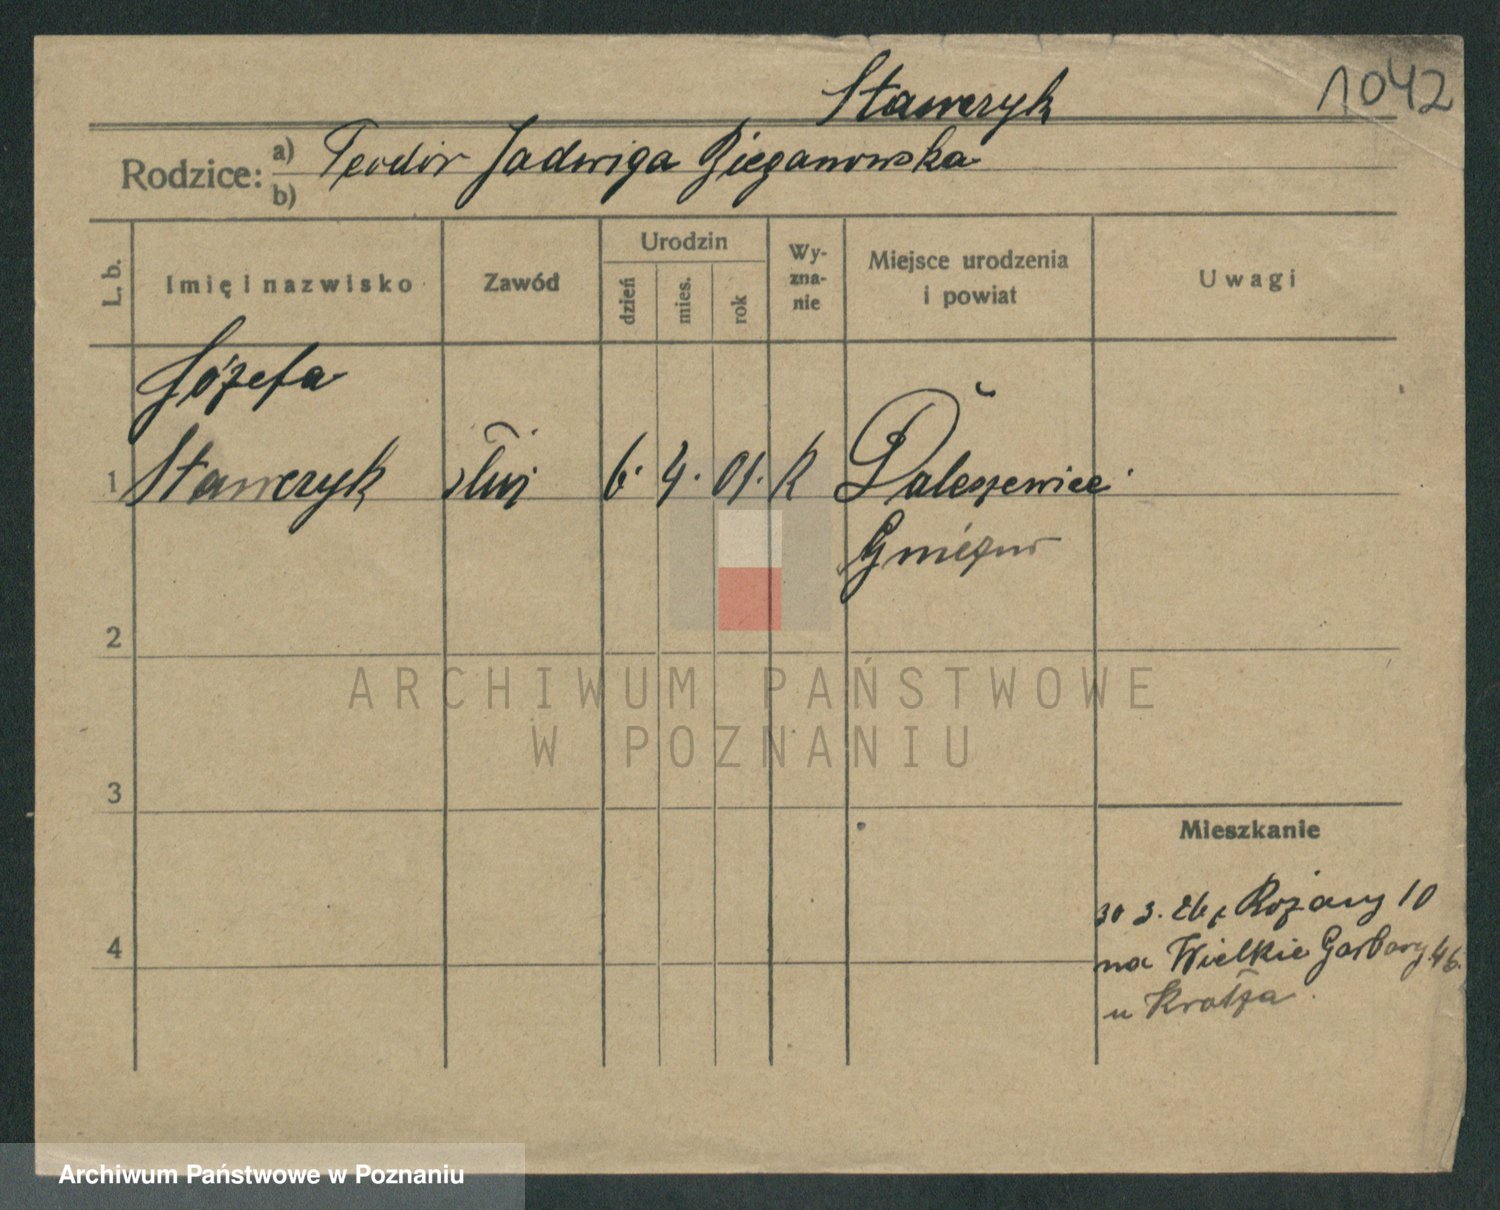 Stawczyk
1042
Rodzice:
a) Teodor Jadwiga Bieganowska
b)
L. b.
Imię i nazwisko
Zawód
Urodzin
dzień
mies.
rok
Wy-
zna-
nie
Miejsce urodzenia
i powiat
Uwagi
Józefa
1 Stawczyk 6. 4. 01. K
Gniezno
2
3
4
ARCHIWUM PAŃSTWOWE
W POZNANIU
Mieszkanie
30 3. 26 z Różany 10
na Wielkie Garbary 46.
u
Archiwum Państwowe w Poznaniu